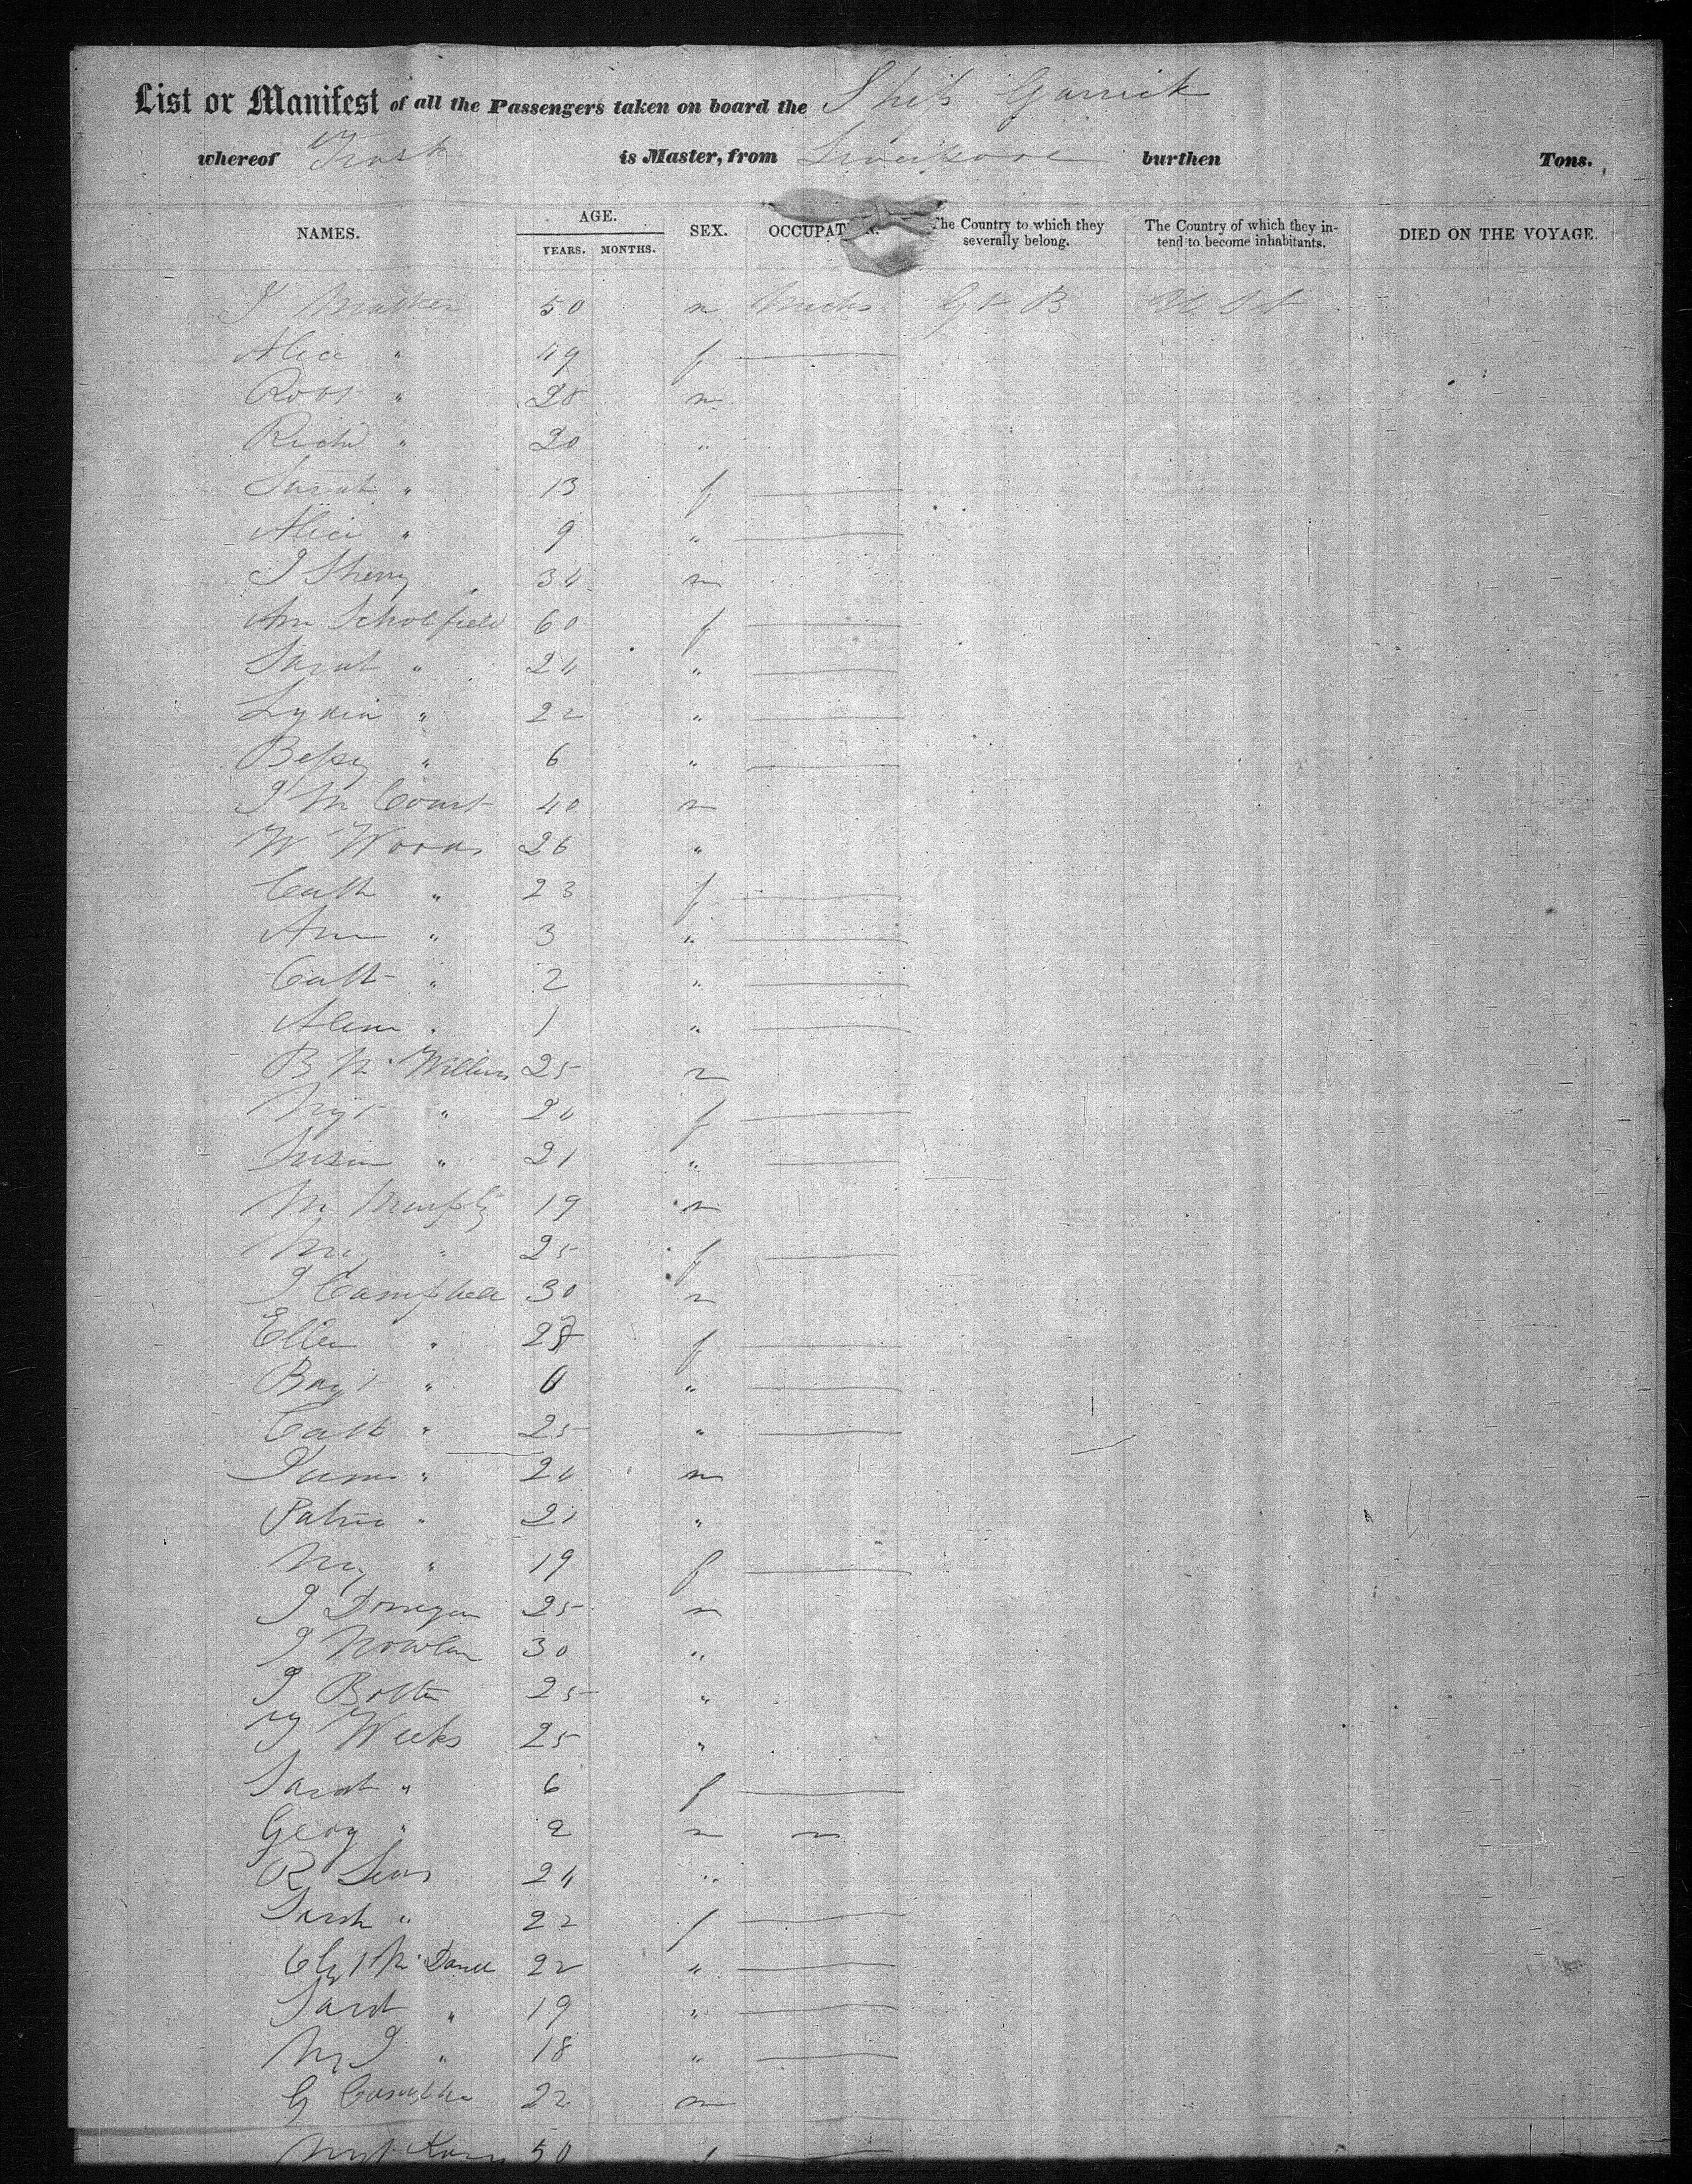 List or Manifest of all the Passengers taken on board the Ship Garrick
whereof Trask is Master, from Liverpool burthen Tons.
NAMES. AGE. YEARS. MONTHS. SEX. OCCUPATION. The Country to which they severally belong. The Country of which they intend to become inhabitants. DIED ON THE VOYAGE.
J Mather 50 m Mechs Gt B U St
Alice " 49 f
Robt " 28 m
Richd " 20 "
Sarah " 13 f
Alice " 9 "
J Sherry 34 m
Ann Scholfield 60 f
Sarah " 24 "
Lydia " 22 "
Bessy " 6 "
J Mc Court 40 m
W Woods 26 "
Cath " 23 f
Ann " 3 "
Cath " 2 "
" 1 "
B Mc Willins 25 m
Mgt " 24 f
Susan " 21 "
M Murphy 19 m
My " 25 f
J Campbell 30 m
Ellen " f
" "
Cath " 25 "
James " 24 m
Patric " 21 "
My " 19 f
J Donegan 25 m
J Nowlan 30 "
J Bolton 25 "
Weeks 25 "
Sarah " 6 f
Geog " 2 m
R 24 "
Sarah " 22 f
Mc 22 "
Sarah " 19 "
M J " 18 "
G 22 m
Mgt 50 f